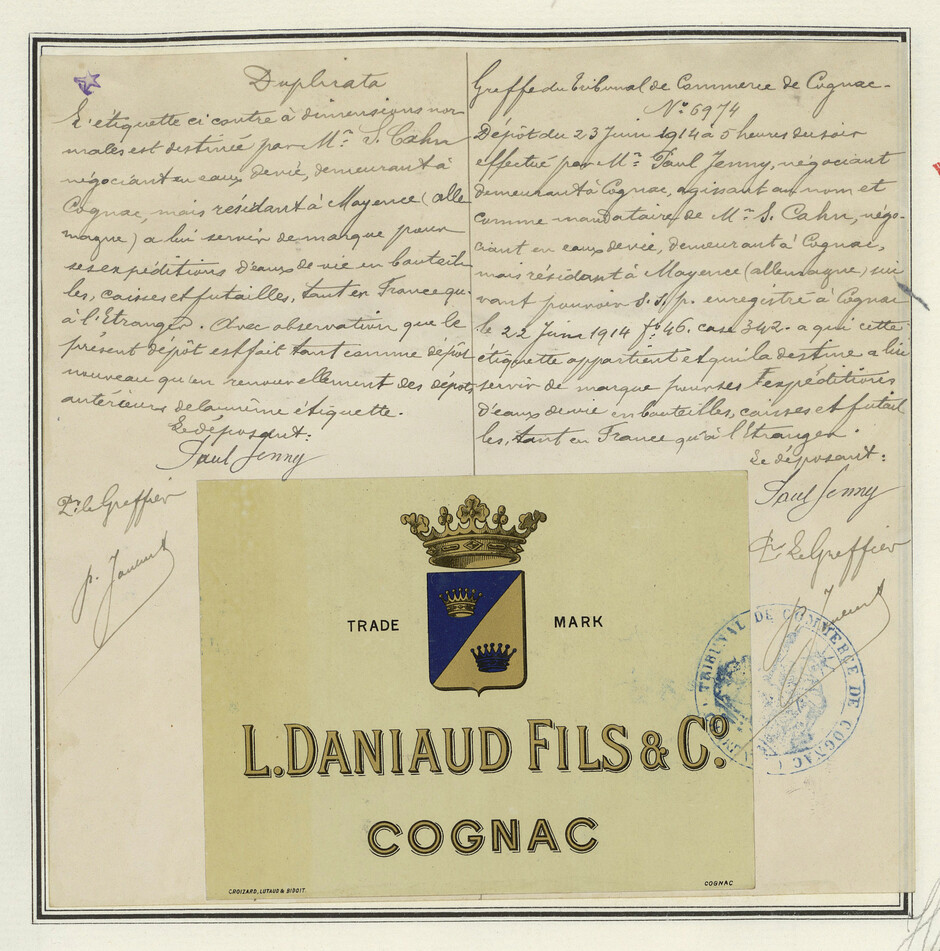 Duplicata
L'étiquette ci contre à dimensions nor
males est destinée par Mr S. Cahn
négociant en eaux de vie, demeurant à
Cognac, mais résidant à Mayence (alle
magne) a lui servir de marque pour
ses expéditions d'eaux de vie en bouteil
les, caisses et futailles, tant en France qu'
à l'Etranger. Avec observation que le
présent dépôt est fait tant comme dépôt
nouveau qu'en renouvellement des dépôts
antérieurs de la même étiquette.
Le déposant:
Paul Jenny
Pr le Greffier
Greffe du Tribunal de Commerce de Cognac-
No 6974
Dépôt du 23 Juin 1914 à 5 heures du soir
effectué par Mr Paul Jenny, négociant
demeurant à Cognac, agissant au nom et
comme mandataire de Mr S. Cahn, négo-
ciant en eaux de vie, demeurant à Cognac,
mais résidant à Mayence (allemagne) sui
vant pouvoir s.s.p. enregistré à Cognac
le 22 Juin 1914 fo 46. case 342. a qui cette
étiquette appartient et qui la destine a lui
servir de marque pour ses expéditions
d'eaux de vie en bouteilles, caisses et futail
les, tant en France qu'à l'Etranger.
Le déposant:
Paul Jenny
Pr Le Greffier
TRIBUNAL DE COMMERCE DE COGNAC
TRADE MARK
L. DANIAUD FILS & Co.
COGNAC
CROIZARD, LUTAUD & BIDOIT.
COGNAC